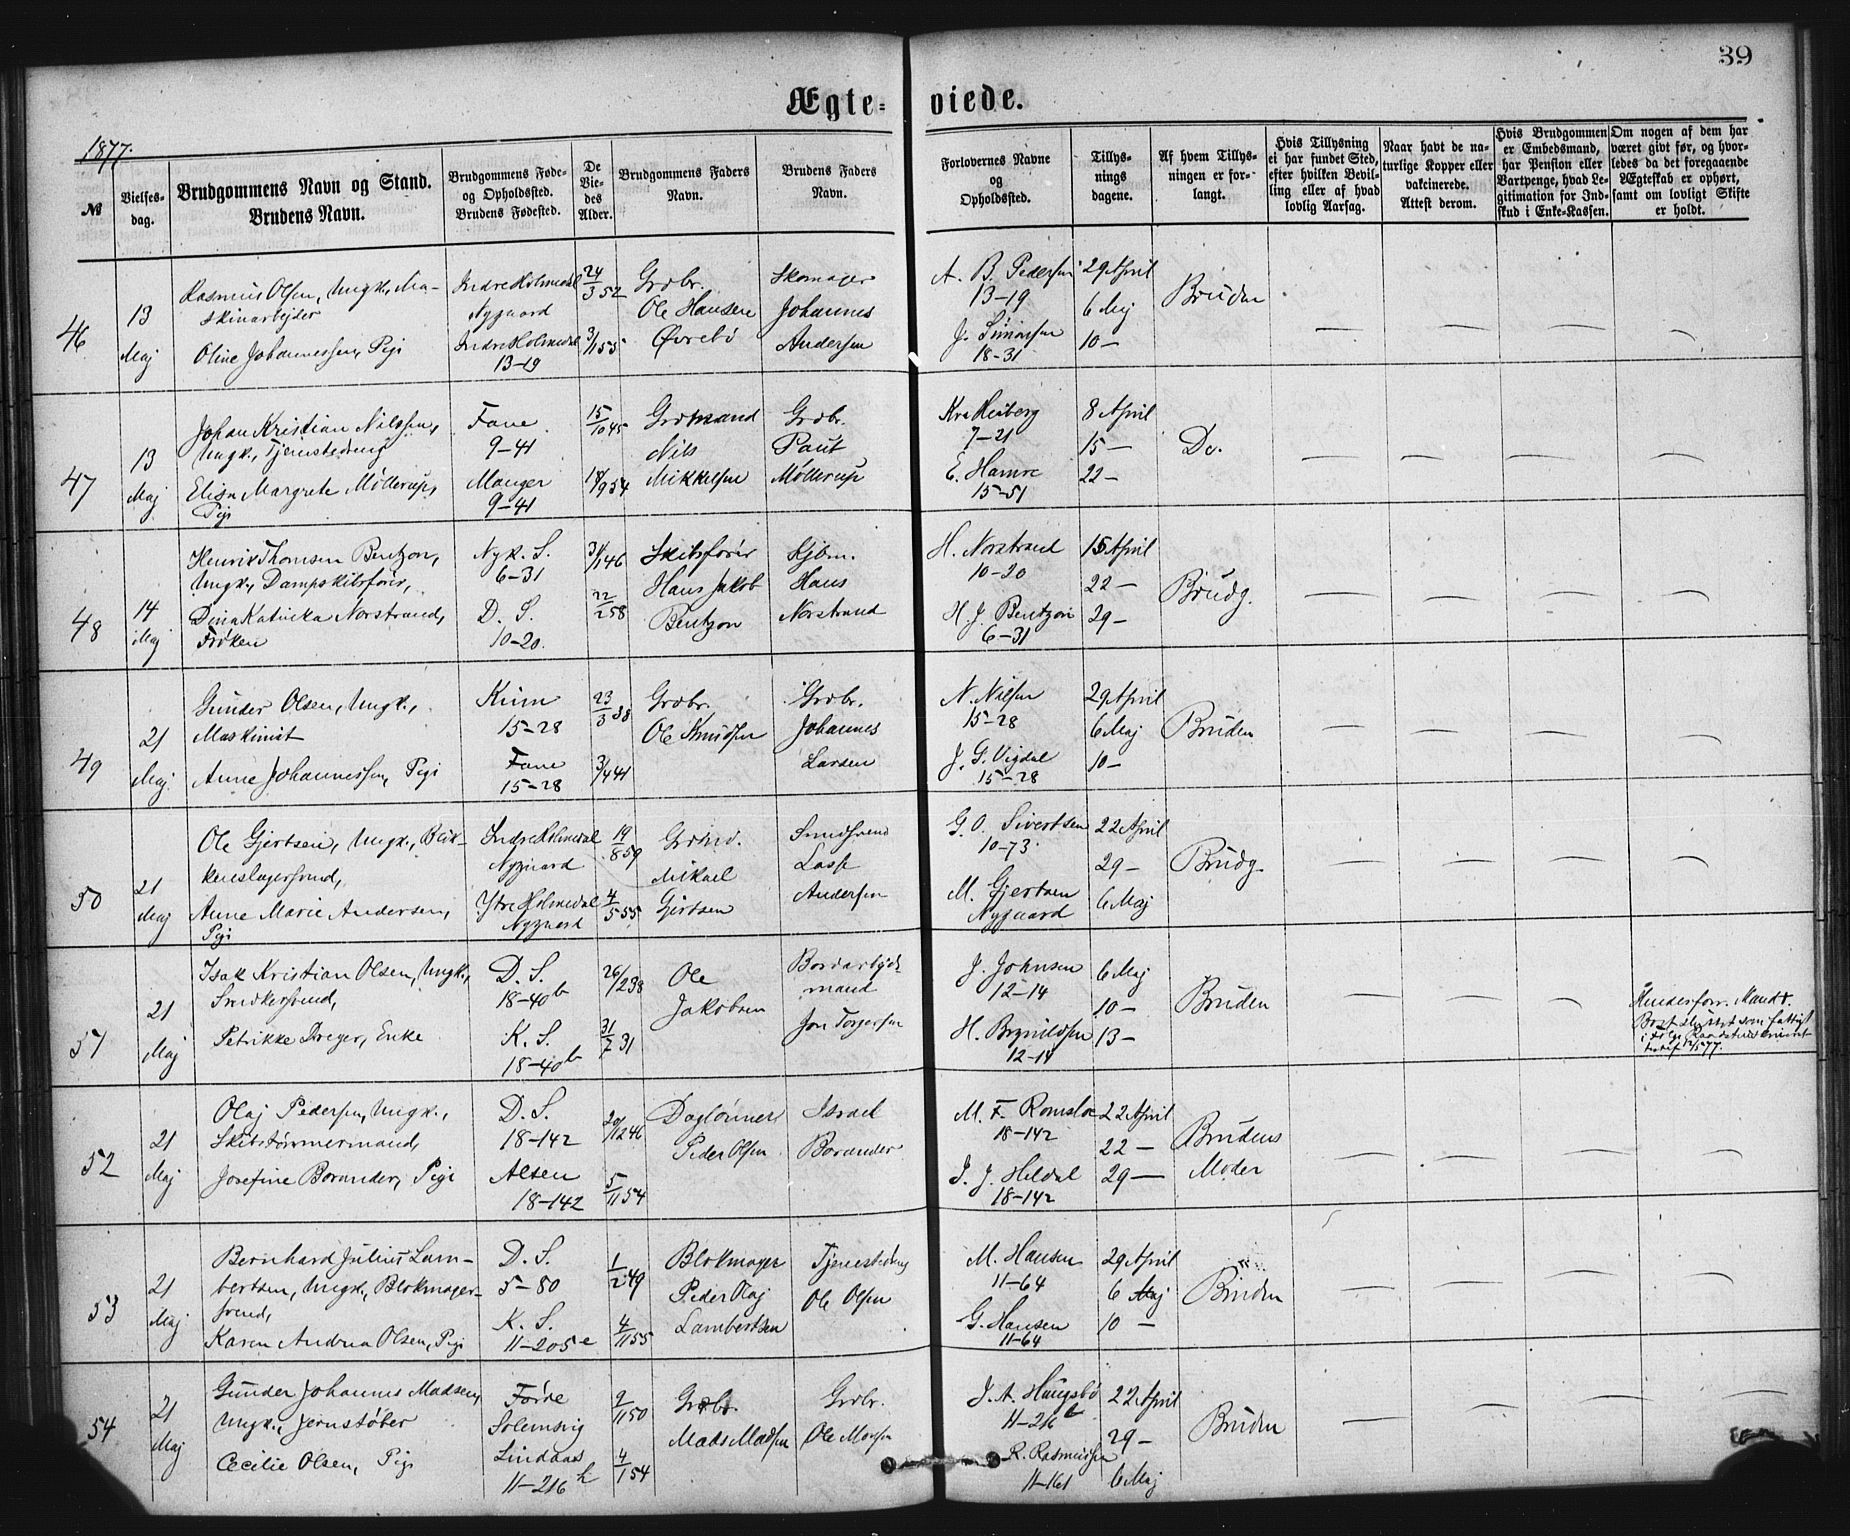 39
Ægte-viede.
1877.
№
Vielses-
dag.
Brudgommens Navn og Stand.
Brudens Navn.
Brudgommens Føde-
og Opholdssted.
Brudens Fødested.
De
Vie-
des
Alder.
Brudgommens Faders
Navn.
Brudens Faders
Navn.
Forlovernes Navne
og
Opholdssted.
Tillys-
nings
dagene.
Af hvem Tillys-
ningen er for-
langt.
Hvis Tillysning
ei har fundet Sted,
efter hvilken Bevil-
ling eller af hvad
lovlig Aarsag.
Naar havt de na-
turlige Kopper eller
vakcinerede.
Attest derom.
Hvis Brudgommen
er Embedsmand,
har Pension eller
Vartpenge, hvad Le-
gitimation for Ind-
skud i Enke-Kassen.
Om nogen af dem har
været givt før, og hvor-
ledes da det foregaaende
Ægteskab er ophørt,
samt om lovligt Skifte
er holdt.
46
13
Maj
Rasmus Olsen, Ungk., Ma-
skinarbejder
Oline Johannessen, Pige
Indre Holmedal
Nygaard
Indre Holmedal
13-19
24/3 52
3/1 55
Grdbr.
Ole Hansen
Øvrebø
Skomager
Johannes
Andersen
A. B. Pedersen
13-19
J. Simonsen
18-31
29 April
6 Maj
10 —
Bruden
47
13
Maj
Johan Kristian Nilssen,
Ungk., Tjenestedreng
Elisa Margrete Møllerup,
Pige
Fane
9-41
Manger
9-41
15/10 45
18/9 54
Grdmand
Nils
Mikkelsen
Grdbr.
Paul
Møllerup
Kr. Heiberg
7-21
E. Hamre
15-51
8 April
15 —
22 —
Do.
48
14
Maj
Henrik Thomsen Bentzon,
Ungk., Dampskibsfører,
Dina Katinka Norstrand,
Frøken
Nyk. S.
6-31
D. S.
10-20
31/1 46
22/2 58
Skibsfører
Hans Jakob
Bentzon
Kjbm.
Hans
Norstrand
H. Norstrand
10-20
H. J. Bentzon
6-31
15 April
22 —
29 —
Brudg.
49
21
Maj
Gunder Olsen, Ungk.,
Maskinist
Anne Johannessen, Pige
Kinn
15-28
Fane
15-28
23/3 38
3/4 41
Grdbr.
Ole Knudsen
Grdbr.
Johannes
Larsen
N. Nilsen
15-28
J. G. Vigdal
15-28
29 April
6 Maj
10 —
Bruden
50
21
Maj
Ole Gjertsen, Ungk., Blik-
kenslagersvend,
Anne Marie Andersen,
Pige
Indre Holmedal
Nygaard
Ytre Holmedal
Nygaard
19/8 59
4/5 55
Grdmd.
Mikael
Gjertsen
Smedsvend
Lasse
Andersen
G. O. Sivertsen
10-73
M. Gjertsen
Nygaard
22 April
29 —
6 Maj
Brudg.
51
21
Maj
Isak Kristian Olsen, Ungk.,
Snedkersvend,
Petrikke Dreyer, Enke
D. S.
18-40b
K. S.
18-40b
26/2 38
31/7 31
Ole
Jakobsen
Bordarbejds-
mand
Jon Torgersen
J. Johnsen
12-14
H. Brynildsen
12-14
6 Maj
10 —
13 —
Bruden
Hendes forr. Mand †.
Boet sluttet som fattigt
52
21
Maj
Olaj Pedersen, Ungk.,
Skibstømmermand,
Josefine Borander, Pige
D. S.
18-142
Alsen
18-142
20/12 46
5/11 54
Daglønner
Peder Olsen
Israel
Borander
M. F. Romslo
18-142
J. J. Heldal
18-142
22 April
22 —
29 —
Brudens
Moder
53
21
Maj
Bernhard Julius Lam-
bertsen, Ungk., Blokmager-
svend,
Karen Andrea Olsen, Pige
D. S.
5-80
K. S.
11-205e
1/2 49
4/11 55
Blokmager
Peder Olaj
Lambertsen
Tjenestedreng
Ole Olsen
M. Hansen
11-64
G. Hansen
11-64
29 April
6 Maj
10 —
Bruden
54
21
Maj
Gunder Johannes Madsen,
Ungk., Jernstøber
Cecilie Olsen, Pige
Førde
Solemsvig
Lindaas
11-216h
9/11 50
4/1 54
Grdbr.
Mads Madsen
Grdbr.
Ole Monsen
J. A. Haugsbø
11-216
R. Rasmussen
11-161
22 April
29 —
6 Maj
Bruden